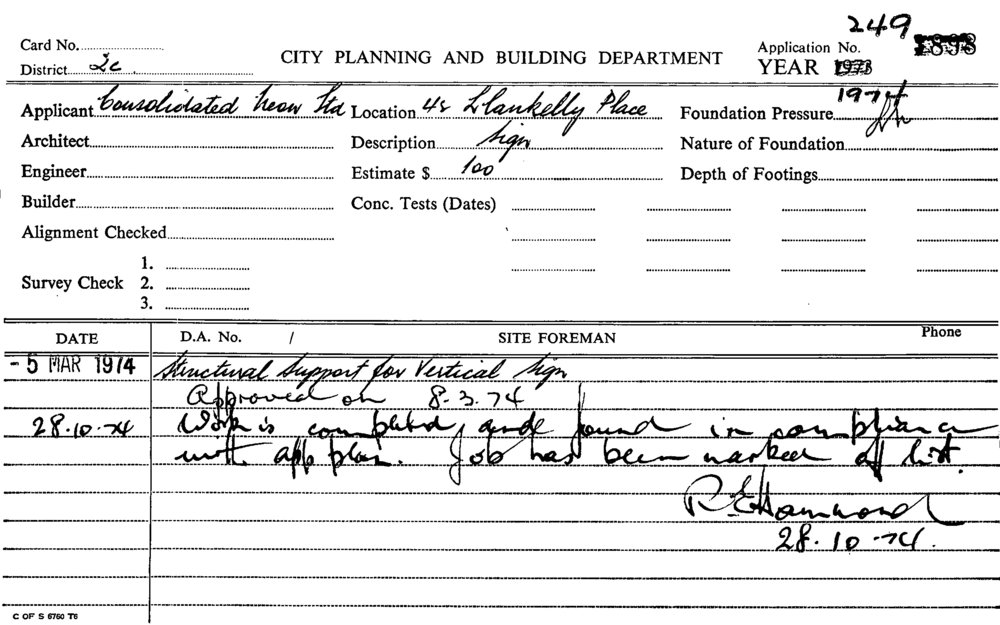 249
Card No.
CITY PLANNING AND BUILDING DEPARTMENT
Application No.
District 2c
YEAR 1973
1974
Applicant Consolidated Neon Ltd Location 4s Llankelly Place Foundation Pressure
Architect Description Sign Nature of Foundation
Engineer Estimate $ 100 Depth of Footings
Builder Conc. Tests (Dates)
Alignment Checked
1.
Survey Check 2.
3.
DATE D.A. No. / SITE FOREMAN Phone
- 5 MAR 1974 Structural Support for Vertical Sign
Approved on 8.3.74
28.10.74 Work is completed, and found in compliance
with app plan. Job has been marked off list.
R E Hammond
28.10.74.
C OF S 6760 T6